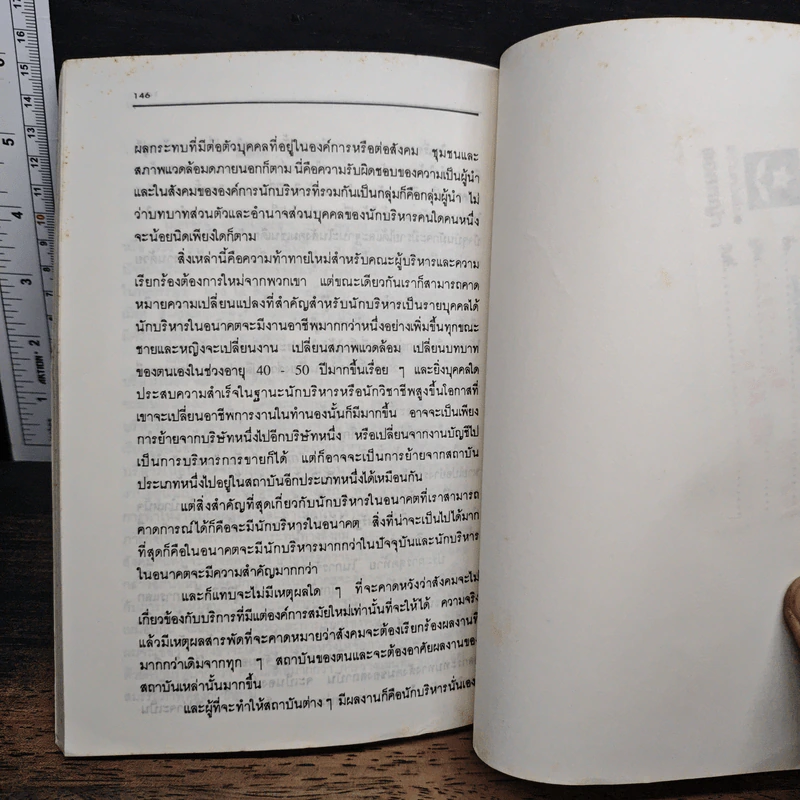 146
ผลกระทบที่มีต่อตัวบุคคลที่อยู่ในองค์การหรือต่อสังคม ชุมชนและ
สภาพแวดล้อมดภายนอกก็ตาม นี่คือความรับผิดชอบของความเป็นผู้นำ
และในสังคมขององค์การนักบริหารที่รวมกันเป็นกลุ่มก็คือกลุ่มผู้นำ ไม่
ว่าบทบาทส่วนตัวและอำนาจส่วนบุคคลของนักบริหารคนใดคนหนึ่ง
จะน้อยนิดเพียงใดก็ตาม
สิ่งเหล่านี้คือความท้าทายใหม่สำหรับคณะผู้บริหารและความ
เรียกร้องต้องการใหม่จากพวกเขา แต่ขณะเดียวกันเราก็สามารถคาด
หมายความเปลี่ยนแปลงที่สำคัญสำหรับนักบริหารเป็นรายบุคคลได้
นักบริหารในอนาคตจะมีงานอาชีพมากกว่าหนึ่งอย่างเพิ่มขึ้นทุกขณะ
ชายและหญิงจะเปลี่ยนงาน เปลี่ยนสภาพแวดล้อม เปลี่ยนบทบาท
ของตนเองในช่วงอายุ 40 - 50 ปีมากขึ้นเรื่อย ๆ และยิ่งบุคคลใด
ประสบความสำเร็จในฐานะนักบริหารหรือนักวิชาชีพสูงขึ้นโอกาสที่
เขาจะเปลี่ยนอาชีพการงานในทำนองนั้นก็มีมากขึ้น อาจจะเป็นเพียง
การย้ายจากบริษัทหนึ่งไปอีกบริษัทหนึ่ง หรือเปลี่ยนจากงานบัญชีไป
เป็นการบริหารการขายก็ได้ แต่ก็อาจจะเป็นการย้ายจากสถาบัน
ประเภทหนึ่งไปอยู่ในสถาบันอีกประเภทหนึ่งได้เหมือนกัน
แต่สิ่งสำคัญที่สุดเกี่ยวกับนักบริหารในอนาคตที่เราสามารถ
คาดการณ์ได้ก็คือจะมีนักบริหารในอนาคต สิ่งที่น่าจะเป็นไปได้มาก
ที่สุดก็คือในอนาคตจะมีนักบริหารมากกว่าในปัจจุบันและนักบริหาร
ในอนาคตจะมีความสำคัญมากกว่า
และก็แทบจะไม่มีเหตุผลใด ๆ ที่จะคาดหวังว่าสังคมจะไม่
เกี่ยวข้องกับบริการที่มีแต่องค์การสมัยใหม่เท่านั้นที่จะให้ได้ ความจริง
แล้วมีเหตุผลสารพัดที่จะคาดหมายว่าสังคมจะต้องเรียกร้องผลงานที่
มากกว่าเดิมจากทุก ๆ สถาบันของตนและจะต้องอาศัยผลงานของ
สถาบันเหล่านั้นมากขึ้น
และผู้ที่จะทำให้สถาบันต่าง ๆ มีผลงานก็คือนักบริหารนั่นเอง